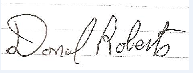 Donal Roberts